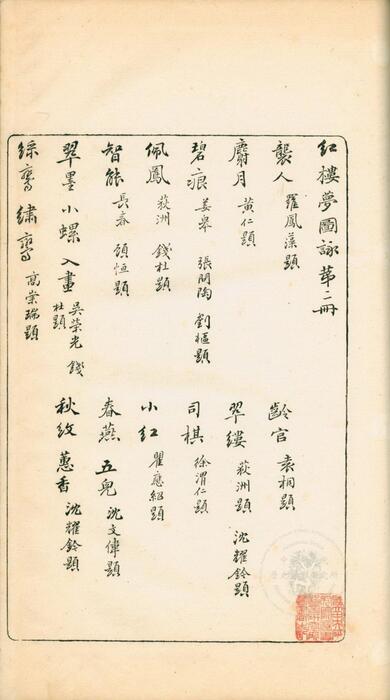 紅樓夢圖詠第二冊
襲人 羅鳳藻題 齡官 袁桐題
麝月 黃仁題 翠縷 荻洲題 沈耀鈴題
碧痕 姜皋 張問陶 劉樞題 司棋 徐渭仁題
佩鳳 荻洲 錢杜題 小紅 瞿應紹題
智能 長春 顧恒題 春燕 五兒 沈文偉題
翠墨 小螺 入畫 吳榮光 錢杜題 秋紋 蕙香 沈耀鈴題
綵鸞 繡鸞 高崇瑞題